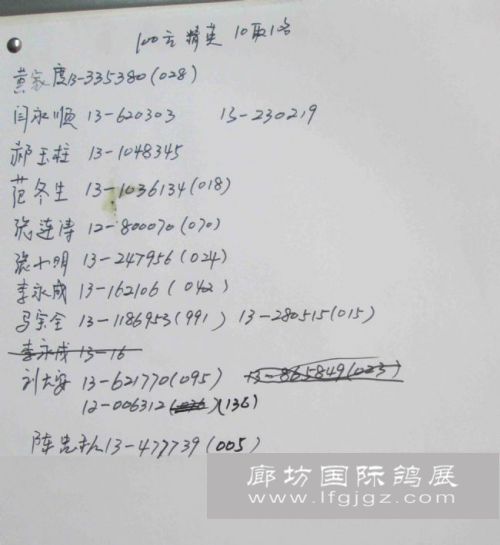 100元精英 10取1名
黄家度13-335380(028)
闫永顺 13-620303 13-230219
郝玉柱 13-1048345
范冬生 13-1036134(018)
张连涛 12-800070(070)
张小明 13-247956(024)
李永成 13-162106(042)
马宗全 13-1186953(991) 13-280515(015)
李永成 13-16
刘大安 13-621770(095) 13-865849(023)
12-006312(036)(136)
陈忠 13-477739(005)
廊坊国际鸽展
www.lfgjgz.com